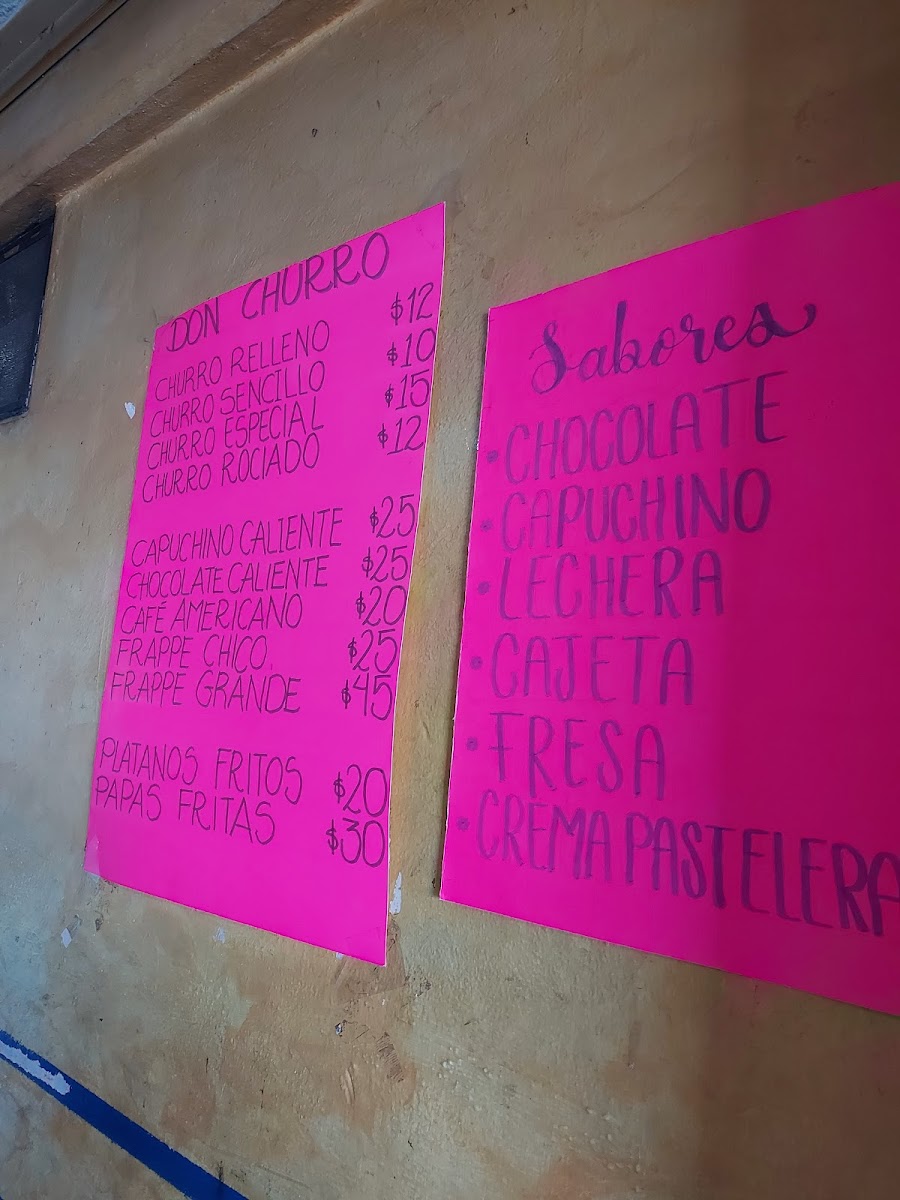 DON CHURRO
CHURRO RELLENO $12
CHURRO SENCILLO $10
CHURRO ESPECIAL $15
CHURRO ROCIADO $12
CAPUCHINO CALIENTE $25
CHOCOLATE CALIENTE $25
CAFÉ AMERICANO $20
FRAPPE CHICO $25
FRAPPE GRANDE $45
PLATANOS FRITOS $20
PAPAS FRITAS $30
Sabores
• CHOCOLATE
• CAPUCHINO
• LECHERA
• CAJETA
• FRESA
• CREMA PASTELERA